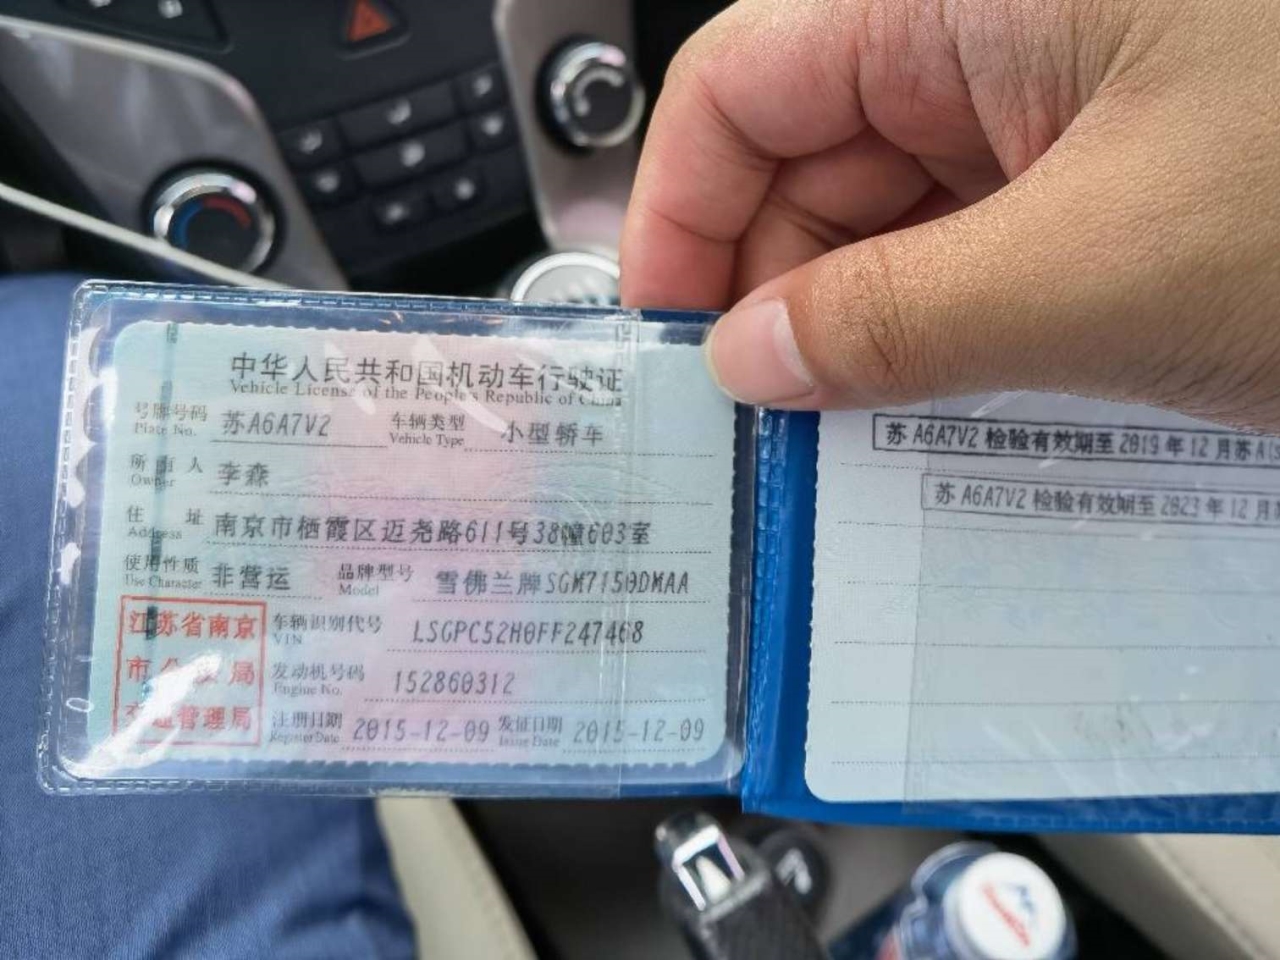 中华人民共和国机动车行驶证
Vehicle License of the People's Republic of China
号牌号码 苏A6A7V2 车辆类型 小型轿车
Plate No. Vehicle Type
所有人 李森
Owner
住址 南京市栖霞区迈尧路611号38幢603室
Address
使用性质 非营运 品牌型号 雪佛兰牌SGM7150DMAA
Use Character Model
车辆识别代号 LSGPC52H0FF247468
VIN
发动机号码 152860312
Engine No.
注册日期 2015-12-09 发证日期 2015-12-09
Register Date Issue Date
江苏省南京
市公安局
交通管理局
苏A6A7V2 检验有效期至2019年12月苏A
苏A6A7V2 检验有效期至2023年12月